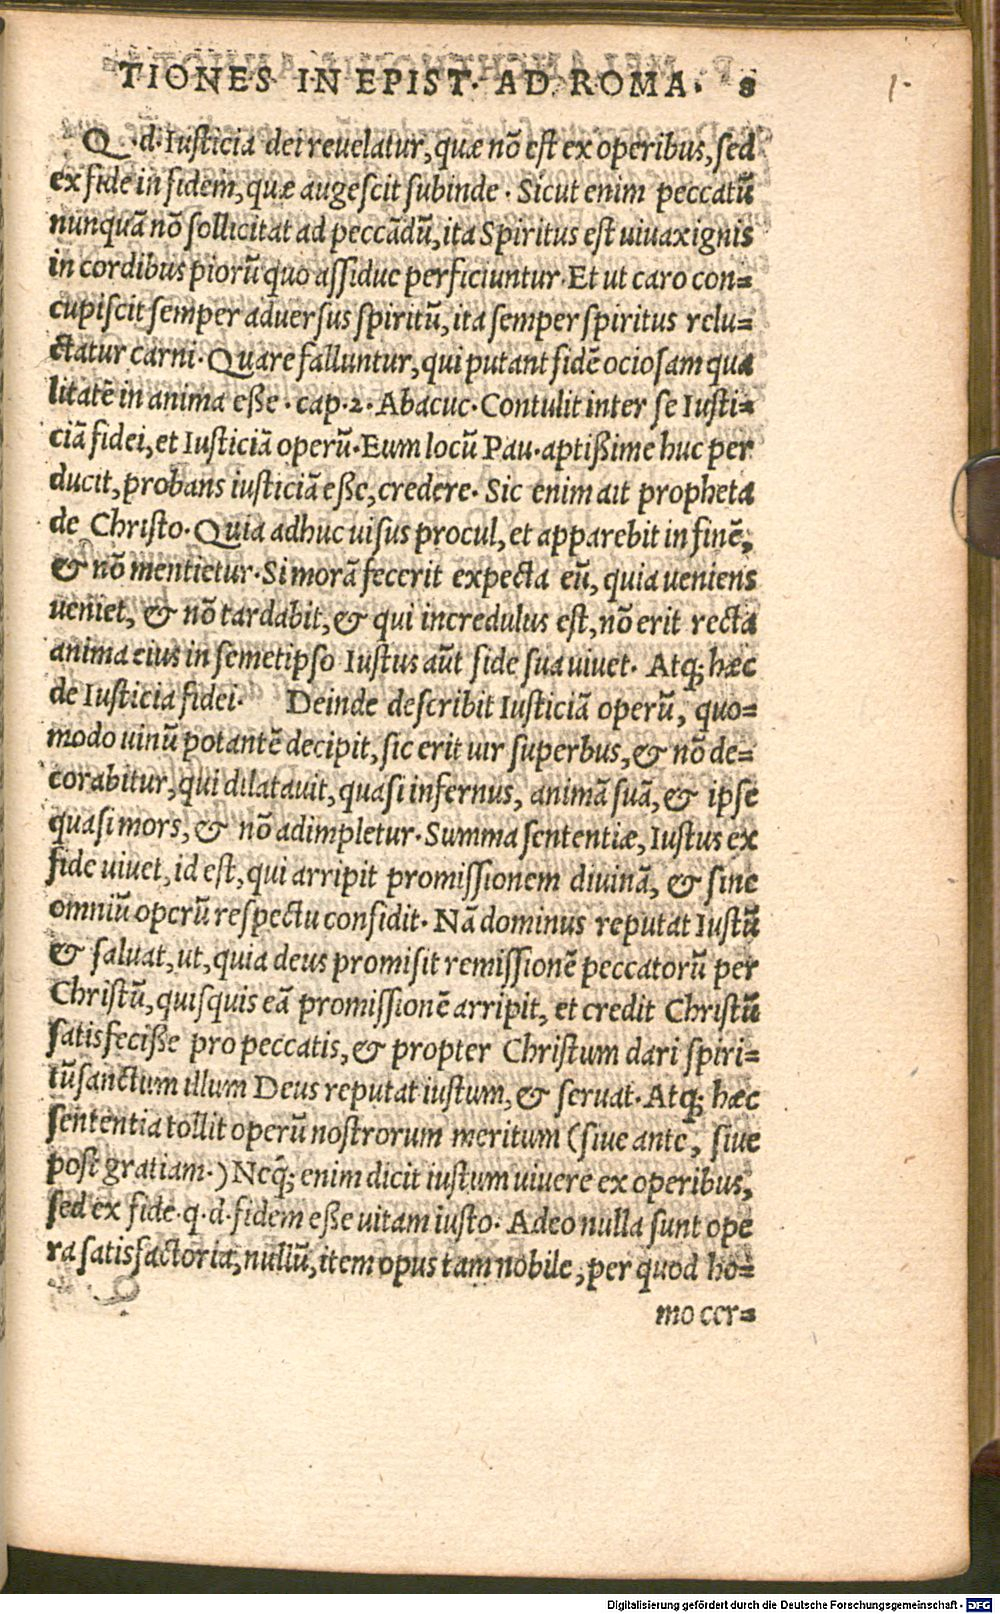 TIONES IN EPIST. AD ROMA. 8
1.
Q.d. Iusticia dei reuelatur, quæ nõ est ex operibus, sed
ex fide in fidem, quæ augescit subinde. Sicut enim peccatũ
nunquã nõ sollicitat ad peccãdũ, ita Spiritus est uiuax ignis
in cordibus piorũ quo assidue perficiuntur. Et ut caro con=
cupiscit semper aduersus spiritũ, ita semper spiritus relu=
ctatur carni. Quare falluntur, qui putant fidẽ ociosam qua
litatẽ in anima eße. cap. 2. Abacuc. Contulit inter se Iusti=
ciã fidei, et Iusticiã operũ. Eum locũ Pau. aptißime huc per
ducit, probans iusticiã eße, credere. Sic enim ait propheta
de Christo. Quia adhuc uisus procul, et apparebit in finẽ,
& nõ mentietur. Si morã fecerit expecta eũ, quia ueniens
ueniet, & nõ tardabit, & qui incredulus est, nõ erit recta
anima eius in semetipso Iustus aũt fide sua uiuet. Atq; hæc
de Iusticia fidei. Deinde describit Iusticiã operũ, quo=
modo uinũ potantẽ decipit, sic erit uir superbus, & nõ de=
corabitur, qui dilatauit, quasi infernus, animã suã, & ipse
quasi mors, & nõ adimpletur. Summa sententiæ, Iustus ex
fide uiuet, id est, qui arripit promissionem diuinã, & sine
omniũ operũ respectu confidit. Nã dominus reputat Iustũ
& saluat, ut, quia deus promisit remissionẽ peccatorũ per
Christũ, quisquis eã promissionẽ arripit, et credit Christũ
satisfeciße pro peccatis, & propter Christum dari spiri=
tũsanctum illum Deus reputat iustum, & seruat. Atq; hæc
sententia tollit operũ nostrorum meritum (siue ante, siue
post gratiam.) Neq; enim dicit iustum uiuere ex operibus,
sed ex fide. q.d. fidem eße uitam iusto. Adeo nulla sunt ope
ra satisfactoria, nullũ, item opus tam nobile, per quod ho=
mo cer=
Digitalisierung gefördert durch die Deutsche Forschungsgemeinschaft - DFG